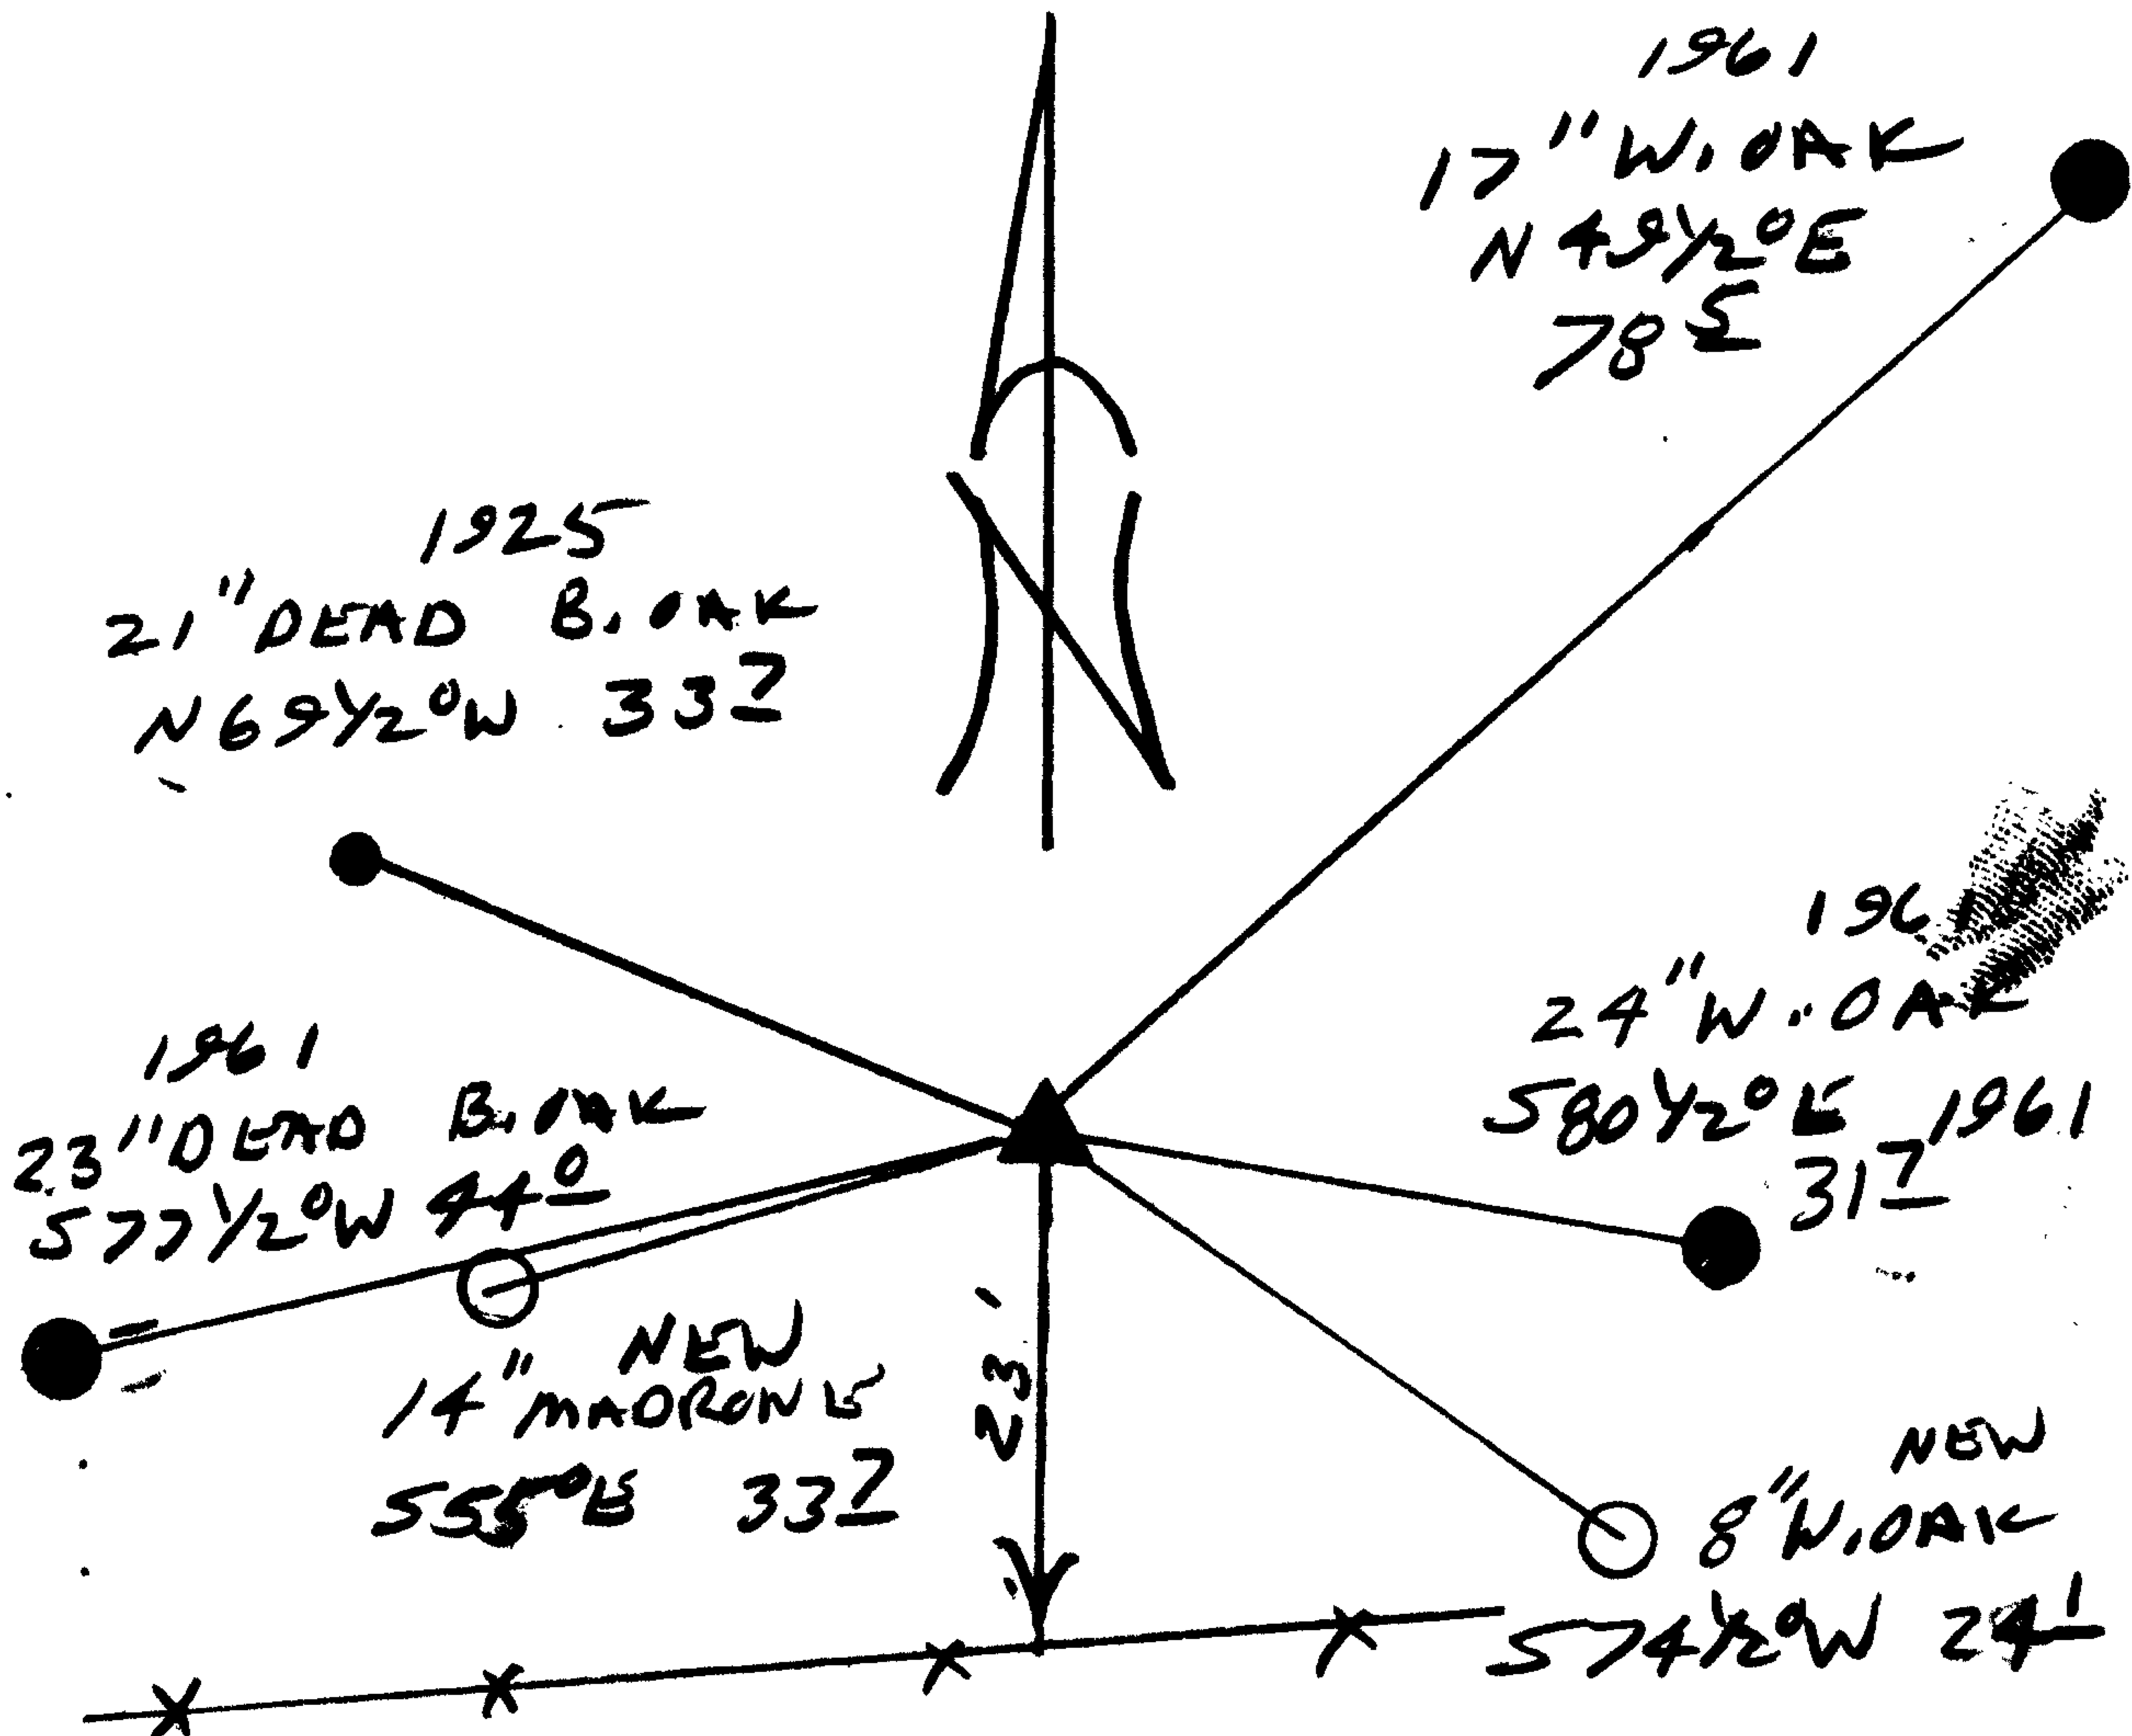 1961
17" W. OAK
N 49½° E
78 5
N
1925
21" DEAD B. OAK
N 69½° W 33 7
1961
24" W. OAK
S 80½° E 1961
31 7
1961
23" DEAD B. OAK
S 77½° W 44 0
NEW
14" MADRONE
S 55° E 33 7
23'
NEW
8" W. OAK
S 74½° W 24 1